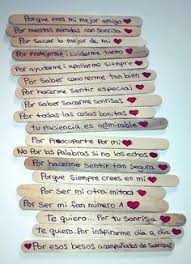 Porque eres mi mejor amigo
Por nuestras miradas con sonrisas
Por sacar lo mejor de mi
Por protegerme y cuidarme tanto
Por ayudarme y apoyarme siempre
Por saber conocerme tan bien
Por hacerme sentir especial
Por saber sacarme sonrisas
Por todas las cosas bonitas
Tu paciencia es admirable
Por Preocuparte por mi
No Por las palabras si no los echos
Por hacerme Sentir tan Segura
Porque Siempre crees en mi
Por Ser mi otra mitad
Por ser mi fan número 1
Te quiero... Por tu Sonrisa
Te quiero..Por inspirarme día a día
Por esos besos acompañados de sonrisas